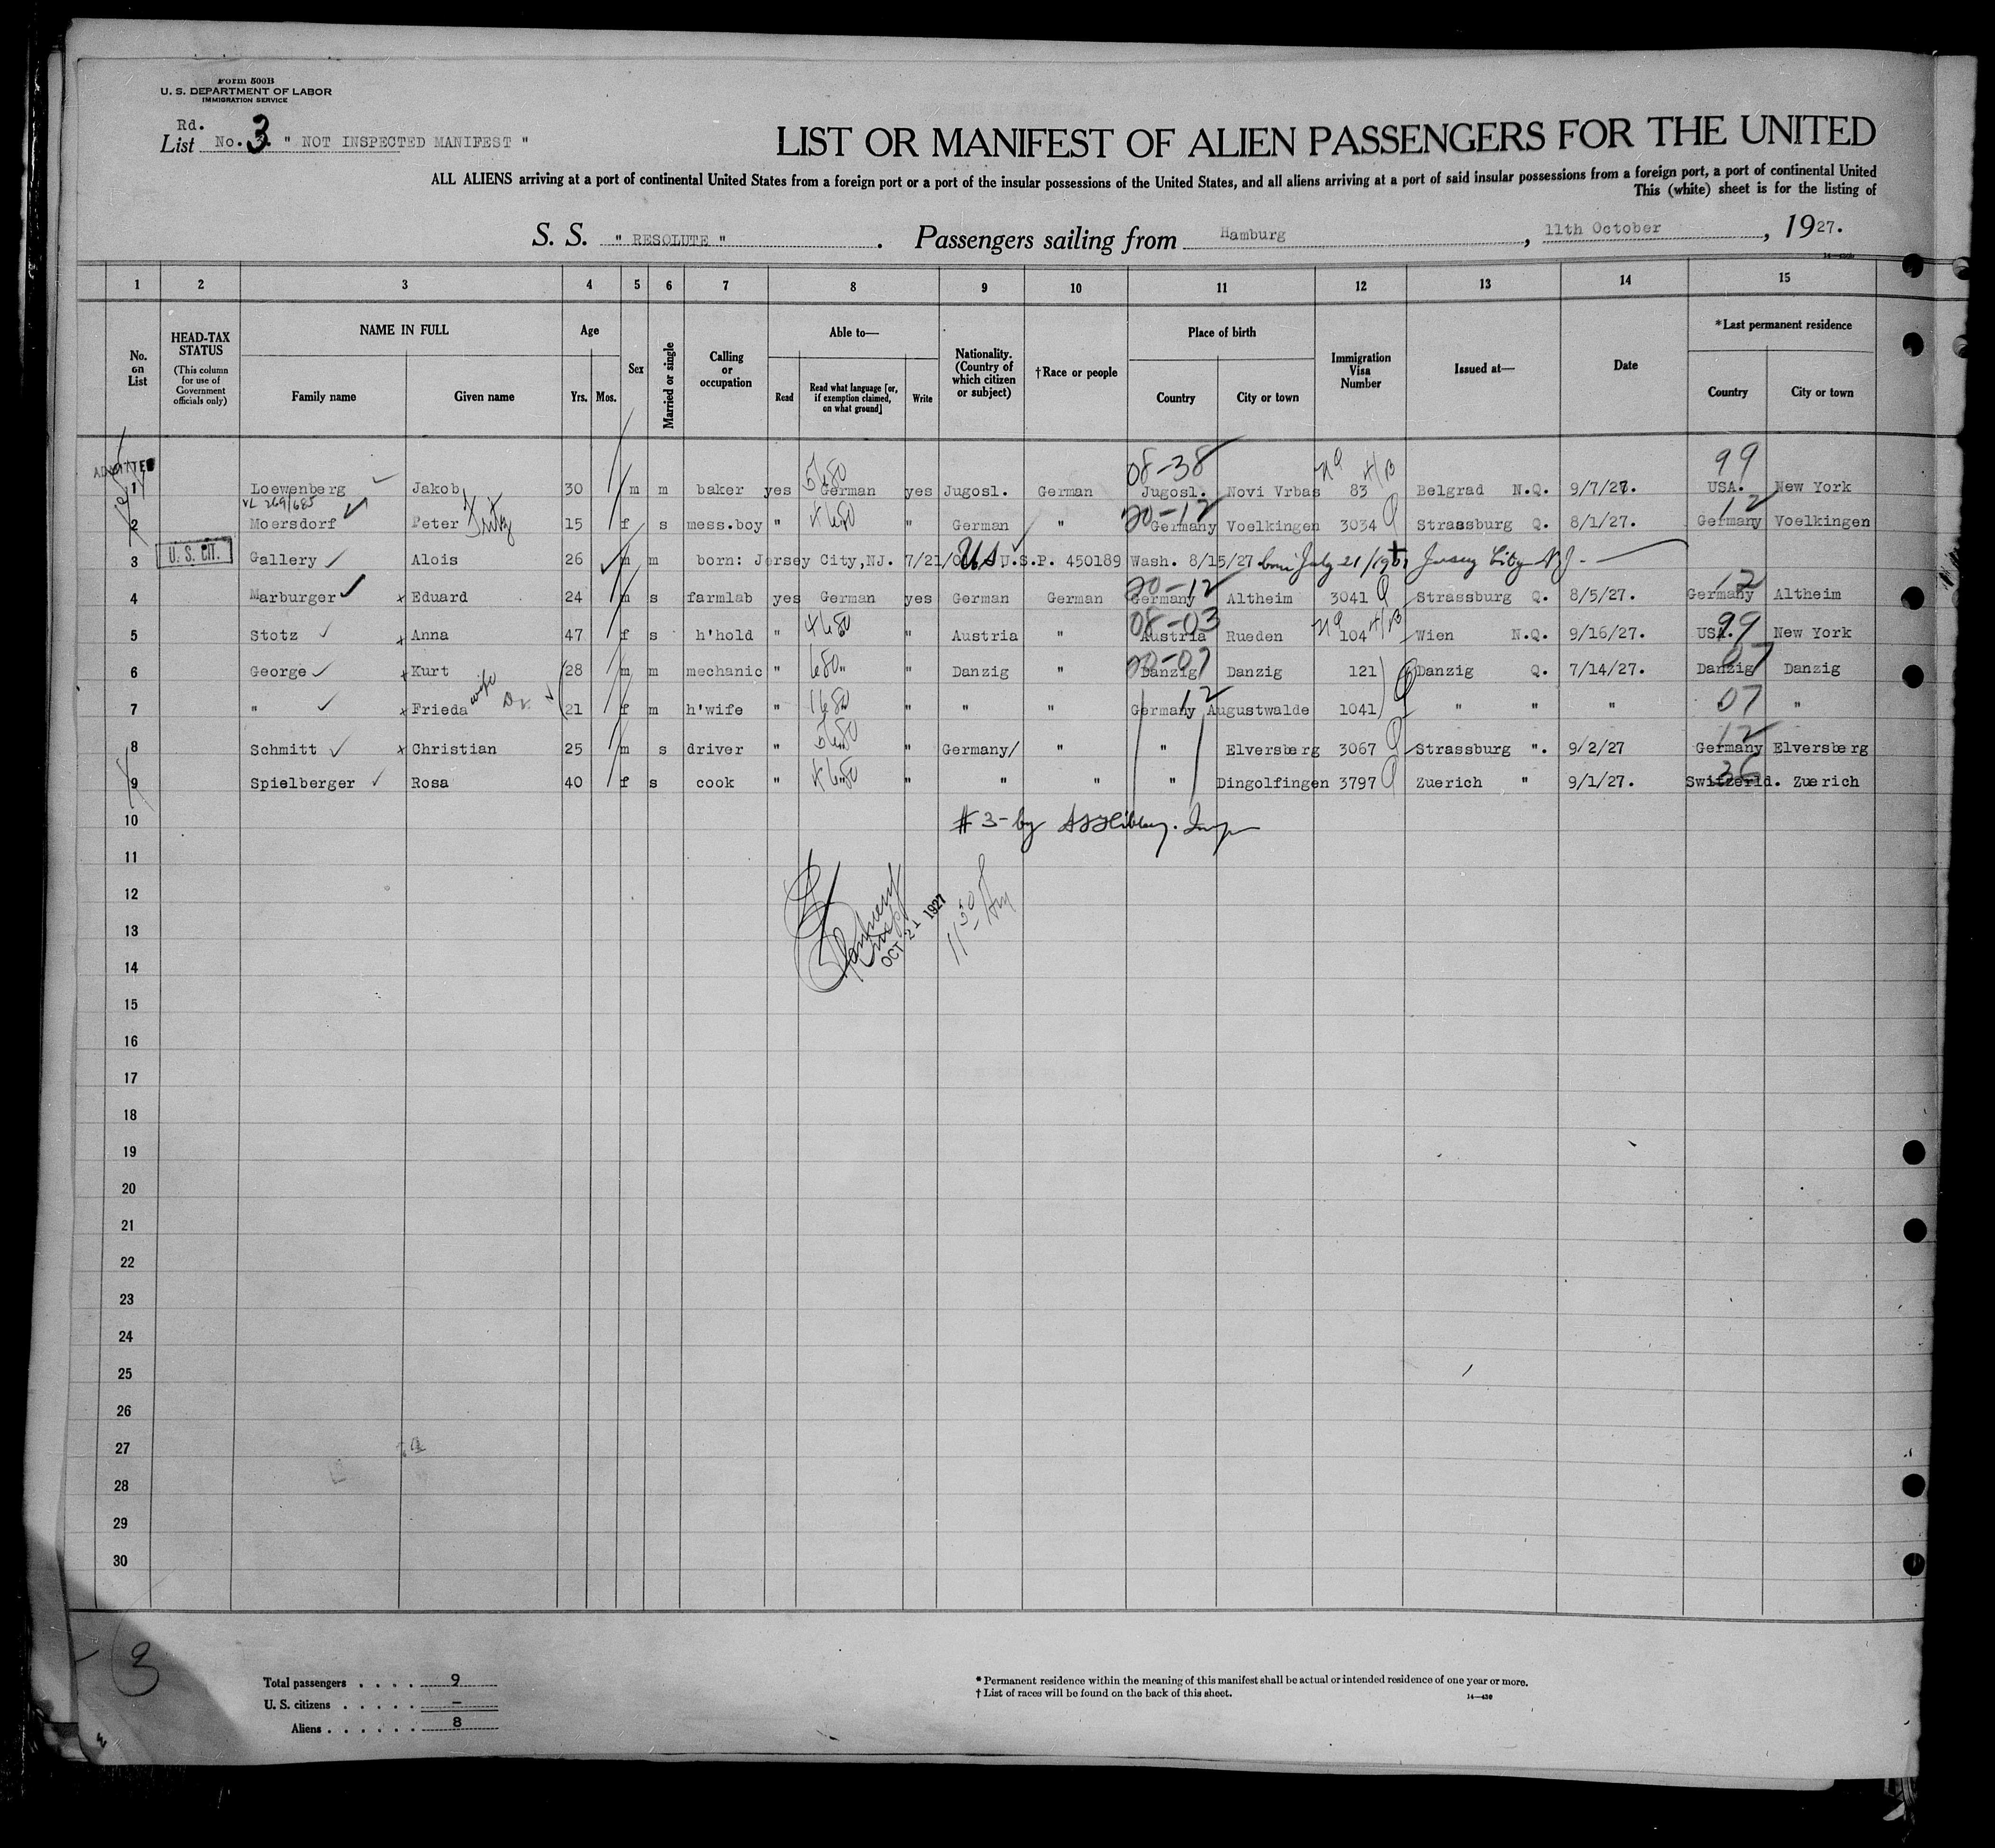 Form 500B
U. S. DEPARTMENT OF LABOR
IMMIGRATION SERVICE
Rd.
List No. 3. " NOT INSPECTED MANIFEST "
LIST OR MANIFEST OF ALIEN PASSENGERS FOR THE UNITED
ALL ALIENS arriving at a port of continental United States from a foreign port or a port of the insular possessions of the United States, and all aliens arriving at a port of said insular possessions from a foreign port, a port of continental United
This (white) sheet is for the listing of
S. S. " RESOLUTE " . Passengers sailing from Hamburg , 11th October , 1927.
1 2 3 4 5 6 7 8 9 10 11 12 13 14 15
No. on List
HEAD-TAX STATUS (This column for use of Government officials only)
NAME IN FULL Family name Given name
Age Yrs. Mos.
Sex
Married or single
Calling or occupation
Able to— Read Read what language [or, if exemption claimed, on what ground] Write
Nationality. (Country of which citizen or subject)
†Race or people
Place of birth Country City or town
Immigration Visa Number
Issued at—
Date
*Last permanent residence Country City or town
ADMITTED
08-38 99
1 Loewenberg Jakob 30 m m baker yes German yes Jugosl. German Jugosl. Novi Vrbas 83 Belgrad N.Q. 9/7/27. USA. New York
VL 269/685 20-12 12
2 Moersdorf Peter Fritz 15 f s mess.boy " " German " Germany Voelkingen 3034 Q Strassburg Q. 8/1/27. Germany Voelkingen
3 U. S. CIT. Gallery Alois 26 m m born: Jersey City,NJ. 7/21/0 US U.S.P. 450189 Wash. 8/15/27 born July 21/1901 Jersey City N.J.
20-12 12
4 Marburger x Eduard 24 m s farmlab yes German yes German German Germany Altheim 3041 Q Strassburg Q. 8/5/27. Germany Altheim
08-03 99
5 Stotz x Anna 47 f s h'hold " " Austria " Austria Rueden 104 Wien N.Q. 9/16/27. USA. New York
20-07 07
6 George x Kurt 28 m m mechanic " " " Danzig " Danzig Danzig 121 Q Danzig Q. 7/14/27. Danzig Danzig
12 07
7 " x Frieda wife 21 f m h'wife " " " " Germany Augustwalde 1041 " " " "
12
8 Schmitt x Christian 25 m s driver " " Germany/ " " Elversberg 3067 Q Strassburg ". 9/2/27 Germany Elversberg
36
9 Spielberger Rosa 40 f s cook " " " " " " Dingolfingen 3797 Q Zuerich " 9/1/27. Switzerld. Zuerich
10 # 3 - by
11
12
13 OCT 21 1927 11 50 Am
14
15
16
17
18
19
20
21
22
23
24
25
26
27
28
29
30
3
Total passengers . . . . 9
U. S. citizens . . . . . —
Aliens . . . . . . 8
* Permanent residence within the meaning of this manifest shall be actual or intended residence of one year or more.
† List of races will be found on the back of this sheet. 14—430